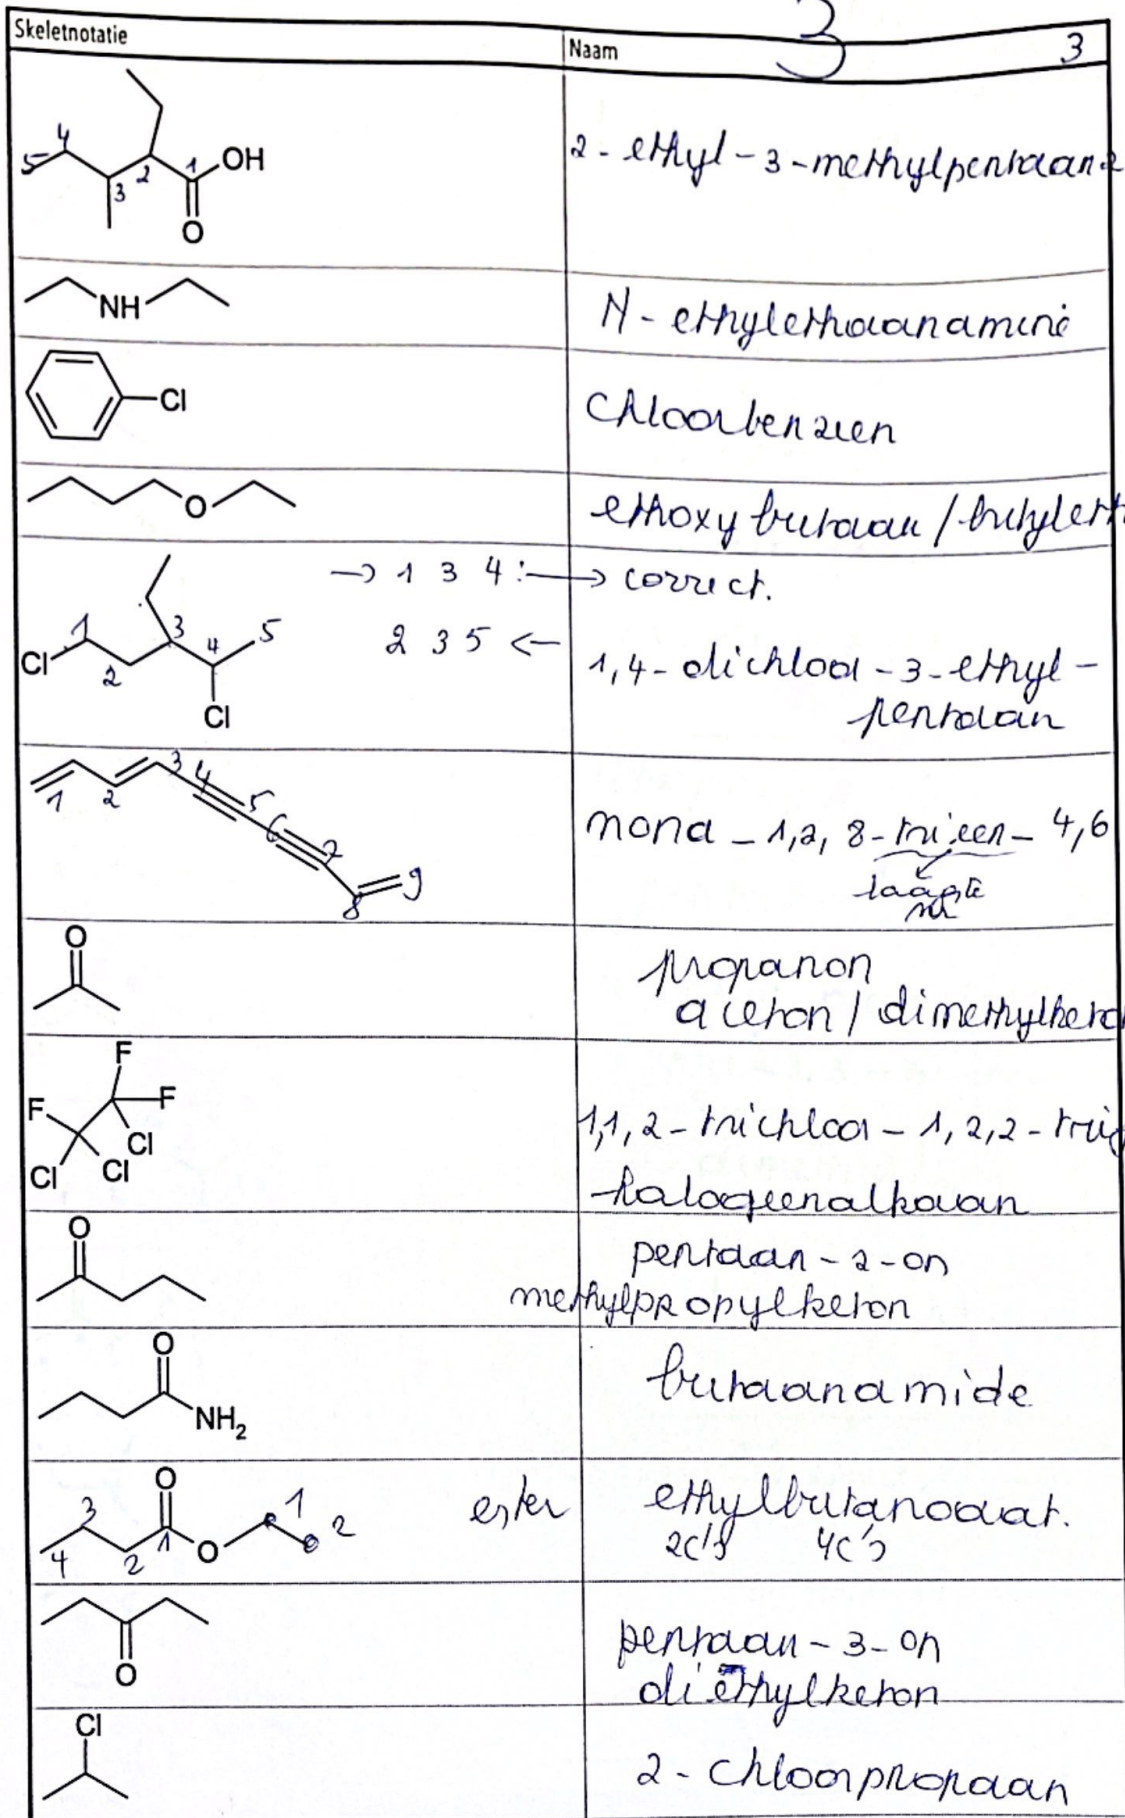 Skeletnotatie
Naam
3
3
OH
O
1
2
3
4
5
2-ethyl-3-methylpentaan-2
NH
N-ethylethaanamine
Cl
chloorbenzeen
O
ethoxybutaan / butyleth
→ 1 3 4 : → correct.
2 3 5 ←
1
2
3
4
5
Cl
Cl
1,4-dichloor-3-ethyl-
pentaan
1
2
3
4
5
6
7
8
9
nona-1,2,8-trieen-4,6
laagste
nr
O
propanon
aceton / dimethylketo
F
F
F
Cl
Cl
Cl
1,1,2-trichloor-1,2,2-trif
halogeenalkaan
O
pentaan-2-on
methylpropylketon
O
NH2
butaanamide
O
O
1
2
3
4
1
2
ester
ethylbutanoaat.
2C's 4C's
O
pentaan-3-on
diethylketon
Cl
2-chloorpropaan